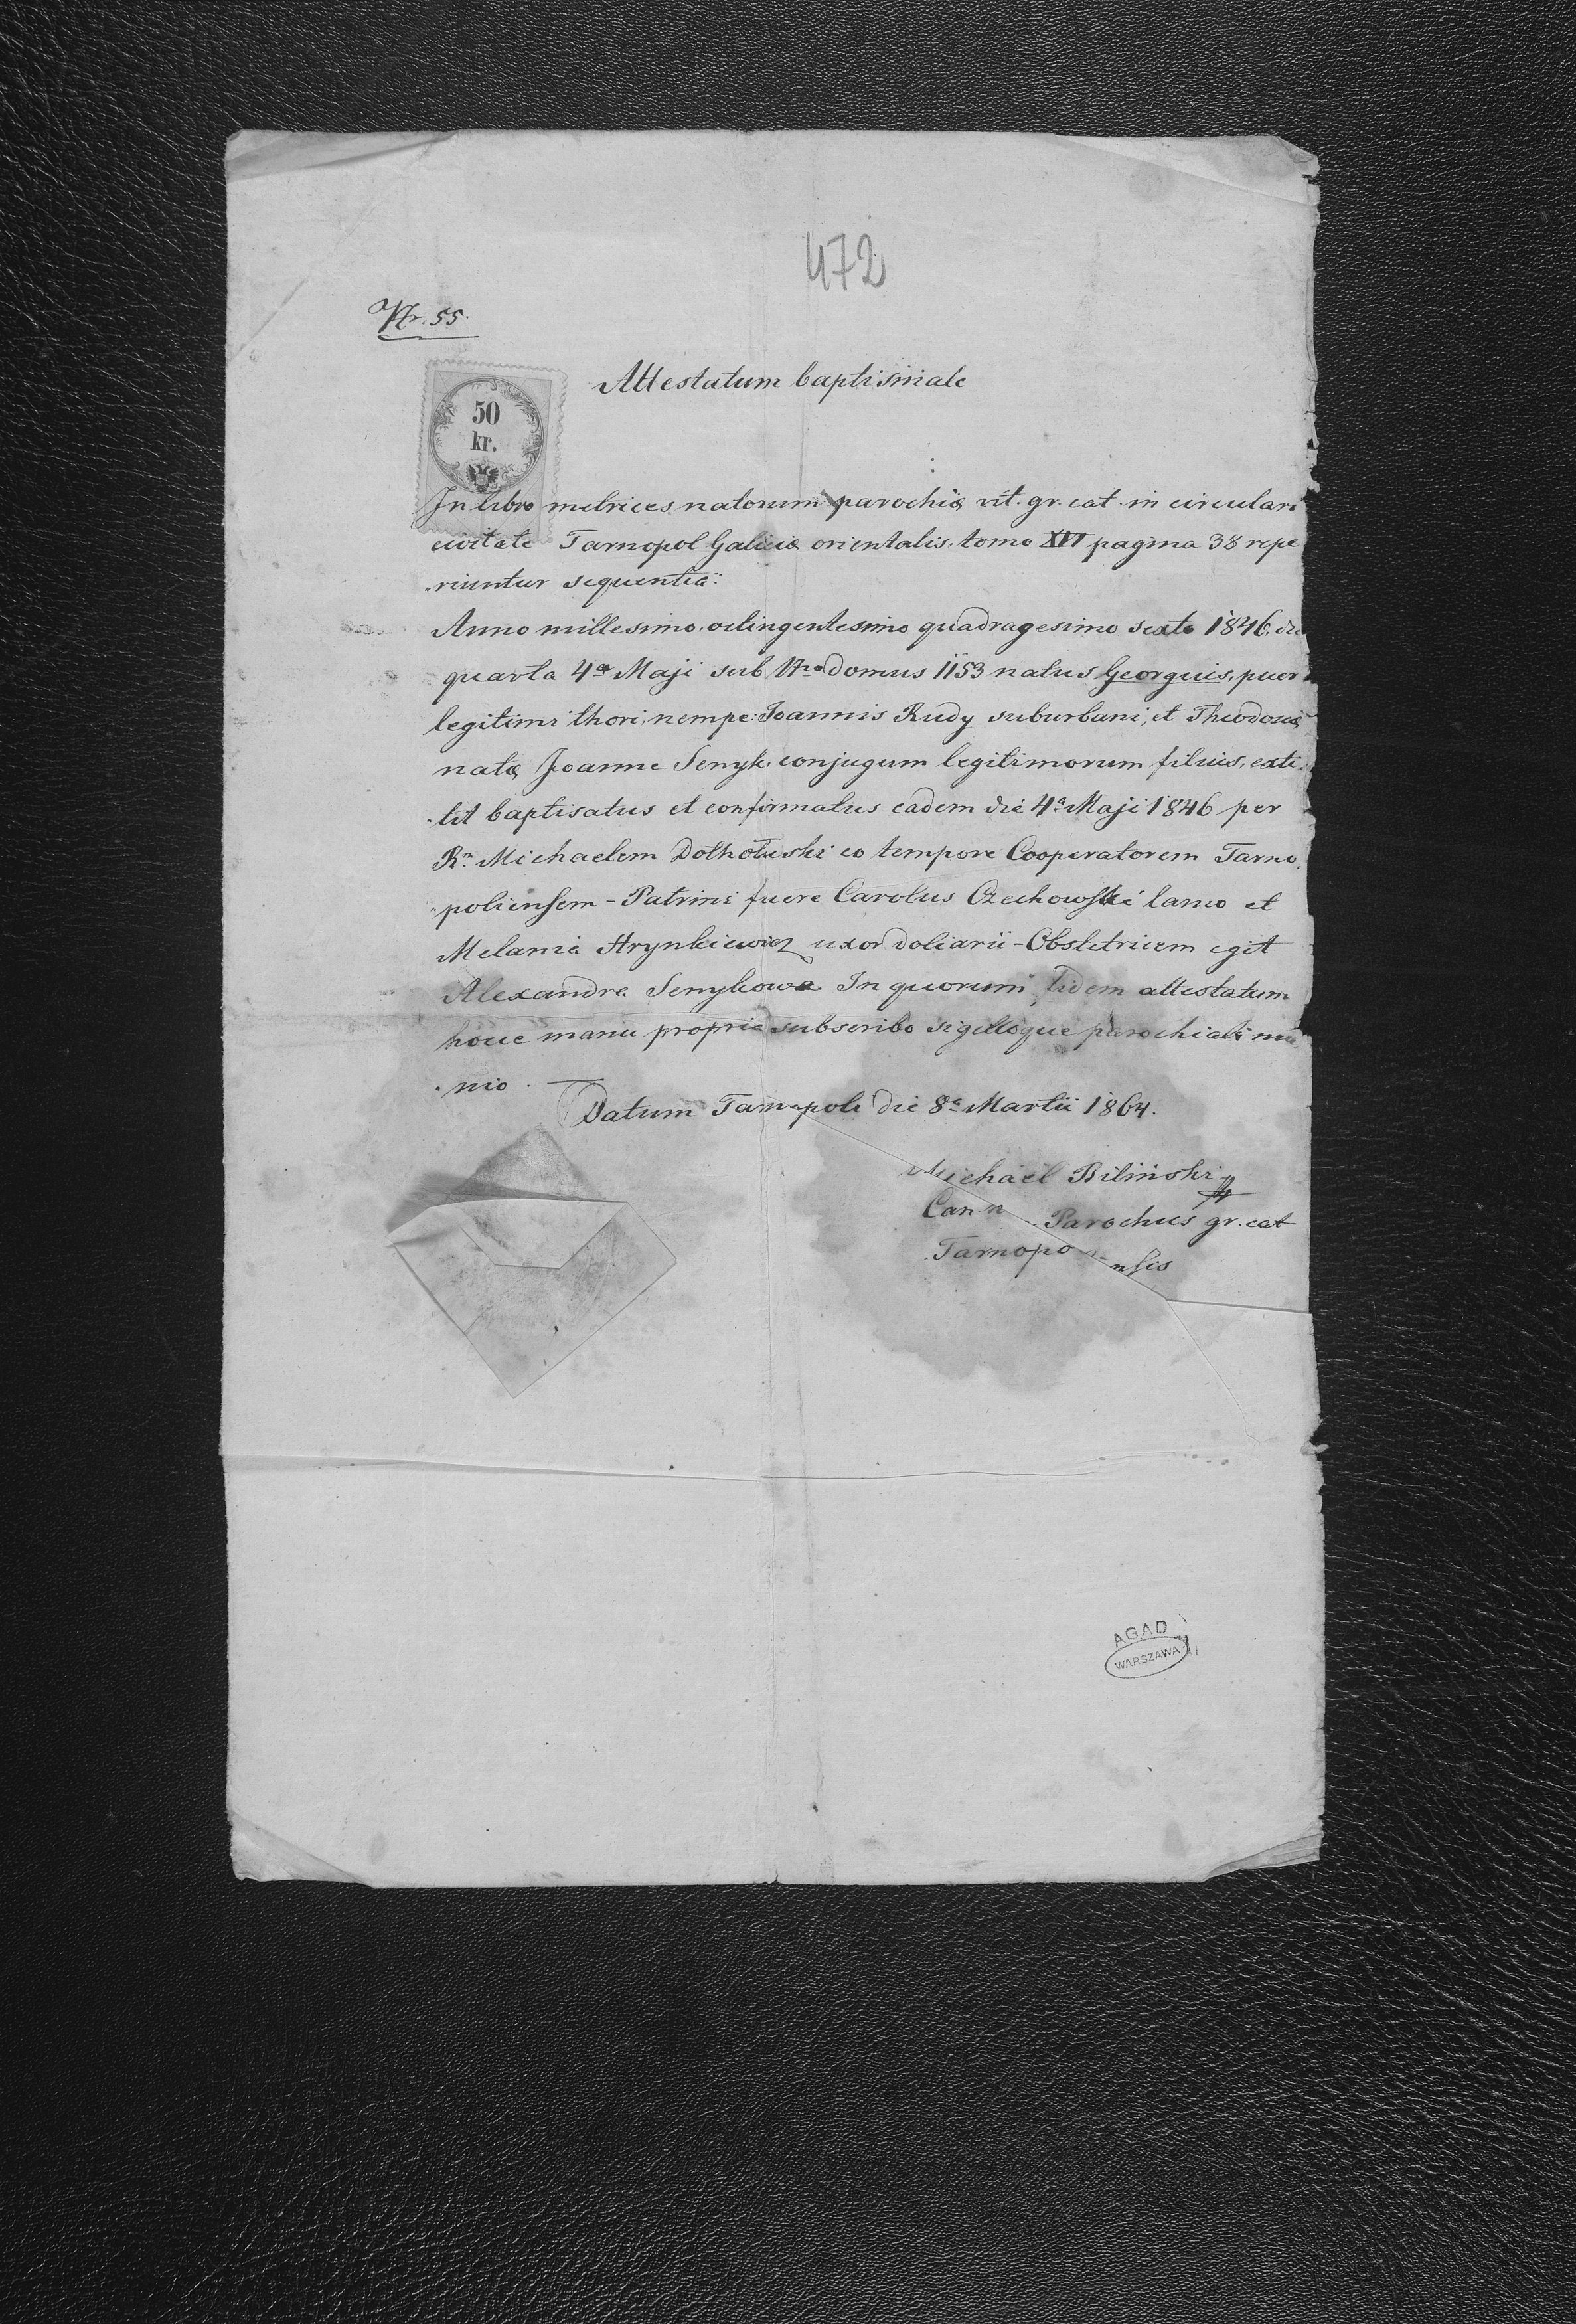 472
Nr. 55.
Attestatum baptismale
50
kr.
In libro metrices natorum parochiæ rit. gr. cat. in circulari
civitate Tarnopol Galiciæ orientalis. tomo XVI pagina 38 repe
riuntur sequentia:
Anno millesimo octingentesimo quadragesimo sexto 1846. die
quarta 4ta Maji sub Nro domus 1153 natus Georgius, puer
legitimi thori, nempe: Joannis Rudy suburbani, et Theodosiæ
natæ Joanne Senyk conjugum legitimorum filius, exti
tit baptisatus et confirmatus eadem die 4a Maji 1846 per
Rm Michaelem eo tempore Cooperatorem Tarno
poliensem - Patrini fuere Carolus Czechowski lanio et
Melania Hrynkiewicz uxor doliarii - Obstetricem egit
Alexandra Senykowa. In quorum fidem attestatum
hocce manu propria subscribo sigelloque parochiali mu
nio.
Datum Tarnopoli die 8a Martii 1864.
Michael Biliński
Parochus gr. cat
AGAD
WARSZAWA